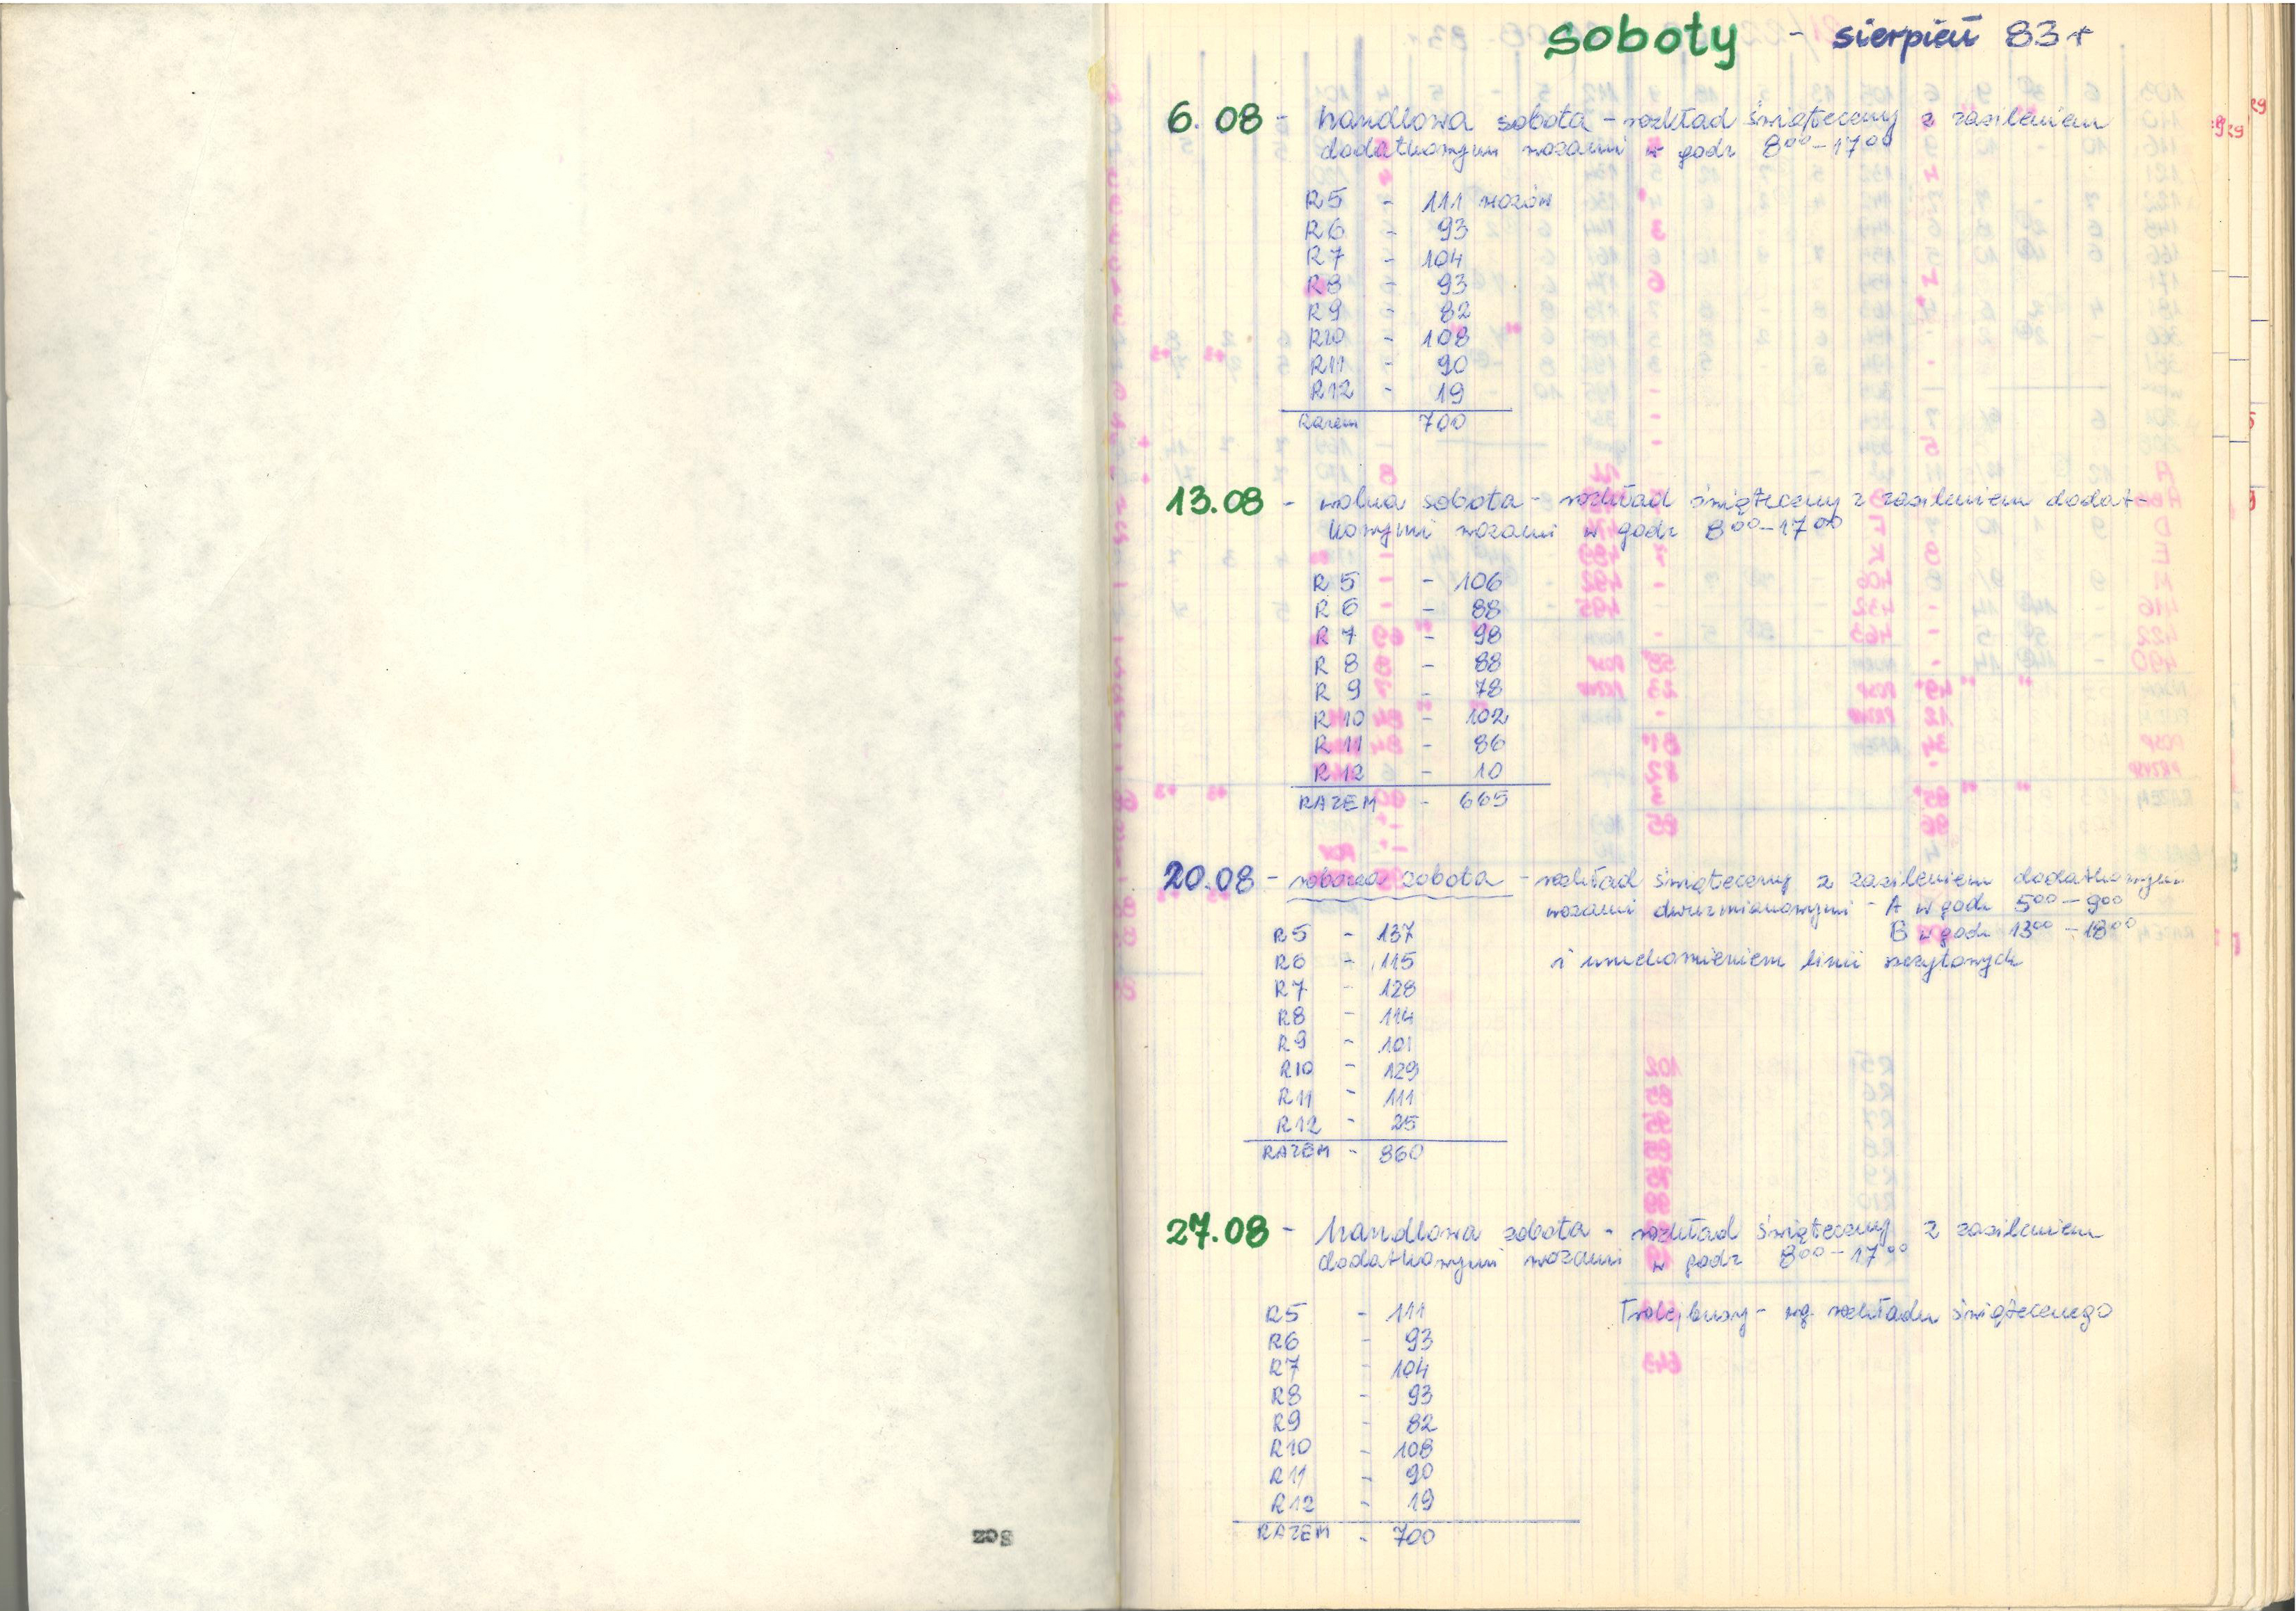 soboty - sierpień 83 r
6.08 - handlowa sobota - rozkład świąteczny z zasileniem
dodatkowym wozami w godz 8⁰⁰-17⁰⁰
R5 - 111 wozów
R6 - 93
R7 - 104
R8 - 93
R9 - 82
R10 - 108
R11 - 90
R12 - 19
Razem 700
13.08 - wolna sobota - rozkład świąteczny z zasileniem dodat-
kowymi wozami w godz 8⁰⁰-17⁰⁰
R5 - 106
R6 - 88
R7 - 98
R8 - 88
R9 - 78
R10 - 102
R11 - 86
R12 - 10
RAZEM - 665
20.08 - robocza sobota - rozkład świąteczny z zasileniem dodatkowym
wozami dwuzmianowymi - A w godz 5⁰⁰-9⁰⁰
B w godz 13⁰⁰-18⁰⁰
i uruchomieniem linii szczytowych
R5 - 137
R6 - 115
R7 - 128
R8 - 114
R9 - 101
R10 - 129
R11 - 111
R12 - 25
RAZEM - 860
27.08 - handlowa sobota - rozkład świąteczny z zasileniem
dodatkowymi wozami w godz 8⁰⁰-17⁰⁰
Trolejbusy - wg. rozkładu świątecznego
R5 - 111
R6 - 93
R7 - 104
R8 - 93
R9 - 82
R10 - 108
R11 - 90
R12 - 19
RAZEM - 700